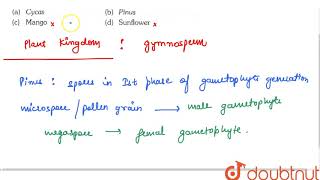 (a) Cycas (b) Pinus
(c) Mango x (d) Sunflower x
Plant Kingdom : gymnosperm
Pinus : spores in Ist phase of gametophytic generation
microspore / pollen grain → male gametophyte
megaspore → female gametophyte.
doubtnut